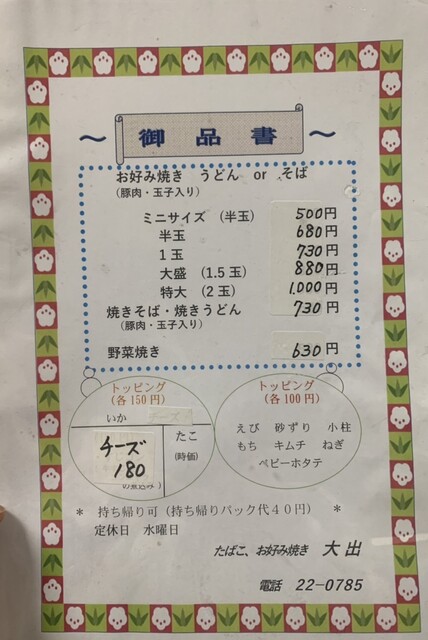 ～ 御品書 ～
お好み焼き うどん or そば
(豚肉・玉子入り)
ミニサイズ (半玉) 500円
半玉 680円
1玉 730円
大盛 (1.5玉) 880円
特大 (2玉) 1,000円
焼きそば・焼きうどん 730円
(豚肉・玉子入り)
野菜焼き 630円
トッピング
(各150円)
いか チーズ
チーズ
180
たこ
(時価)
の煮込み)
トッピング
(各100円)
えび 砂ずり 小柱
もち キムチ ねぎ
ベビーホタテ
* 持ち帰り可 (持ち帰りパック代40円) *
定休日 水曜日
たばこ、お好み焼き 大出
電話 22-0785